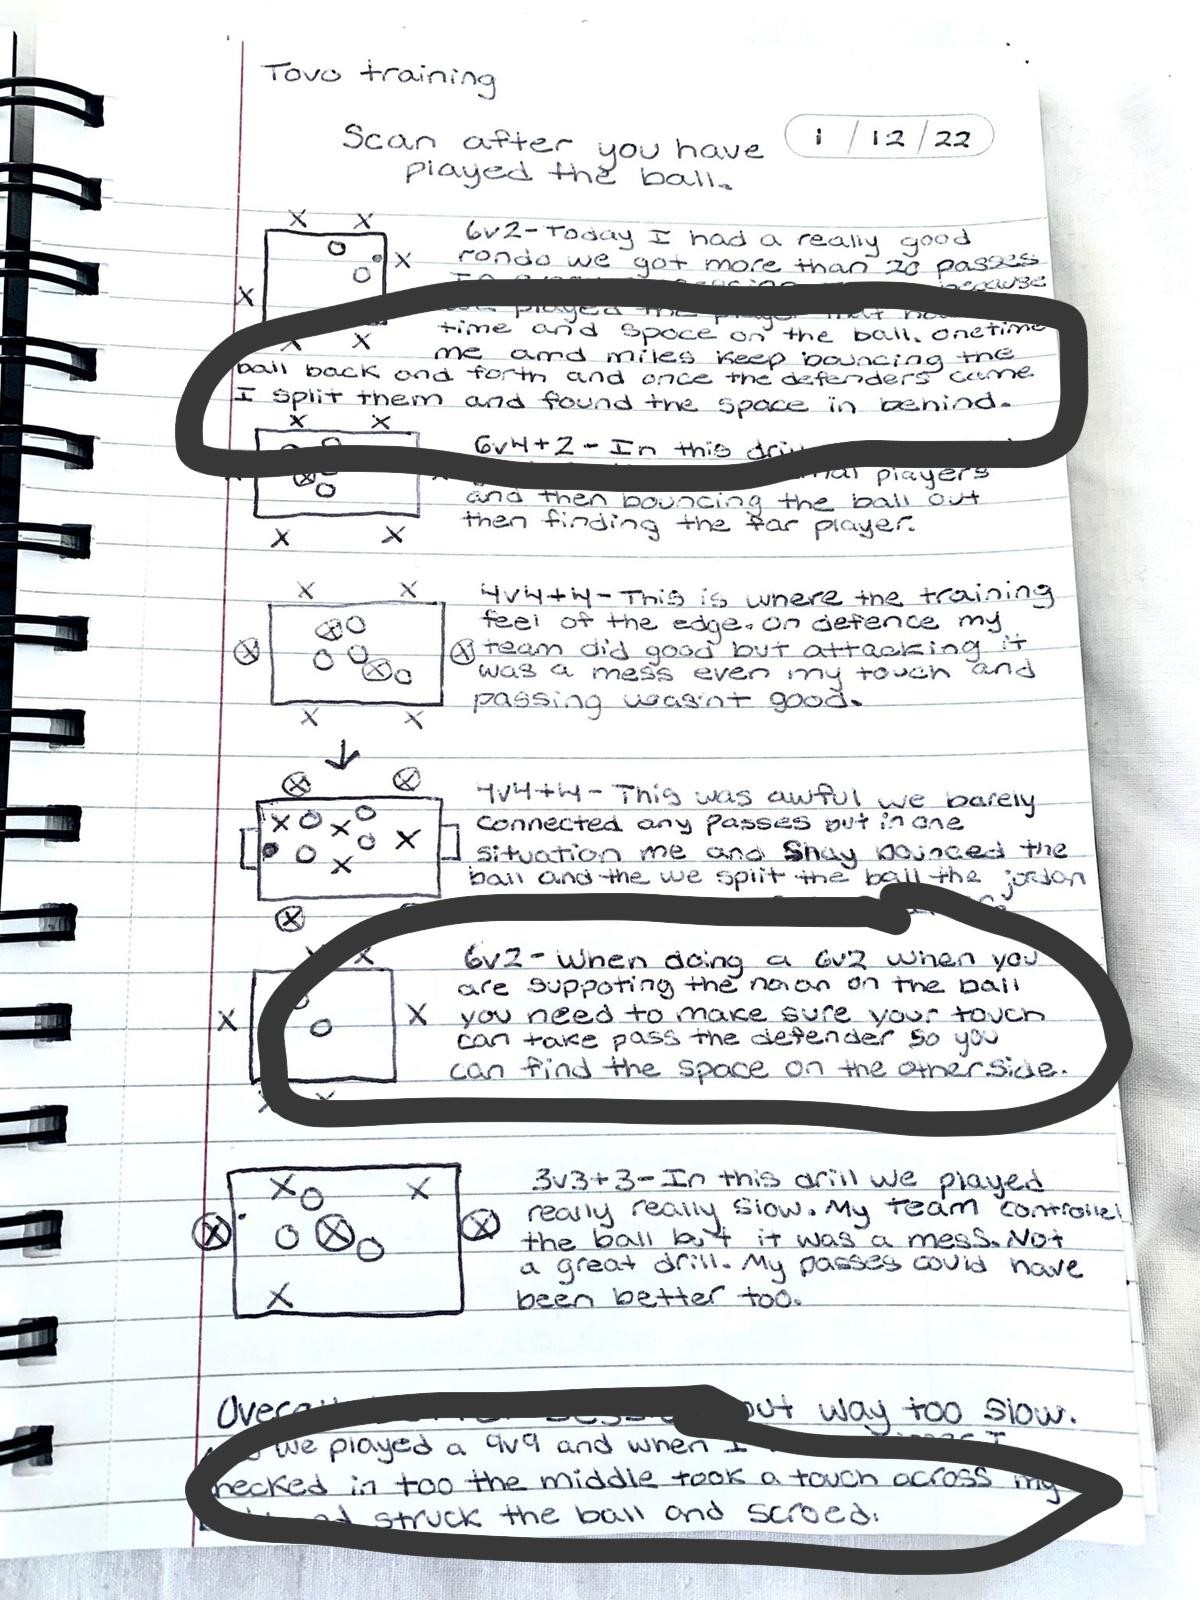 Tovo training
1 / 12 / 22
Scan after you have
played the ball.
6v2-Today I had a really good
rondo we got more than 20 passes
because
played the player that
time and space on the ball. onetime
me amd miles keep bouncing the
ball back and forth and once the defenders came
I split them and found the space in behind.
6v4+2 - In this
players
and then bouncing the ball out
then finding the far player.
4v4+4-This is where the training
feel of the edge. on defence my
team did good but attacking it
was a mess even my touch and
passing wasn't good.
4v4+4- This was awful we barely
connected any passes but in one
situation me and Shay bounced the
ball and the we split the ball the jordan
6v2- When doing a 6v2 when you
are suppoting the on the ball
you need to make sure your touch
can take pass the defender so you
can find the space on the otherside.
3v3+3-In this drill we played
really really slow. My team
the ball but it was a mess. Not
a great drill. My passes could have
been better too.
but way too slow.
we played a 9v9 and when I
in too the middle took a touch across my
struck the ball and scroed.